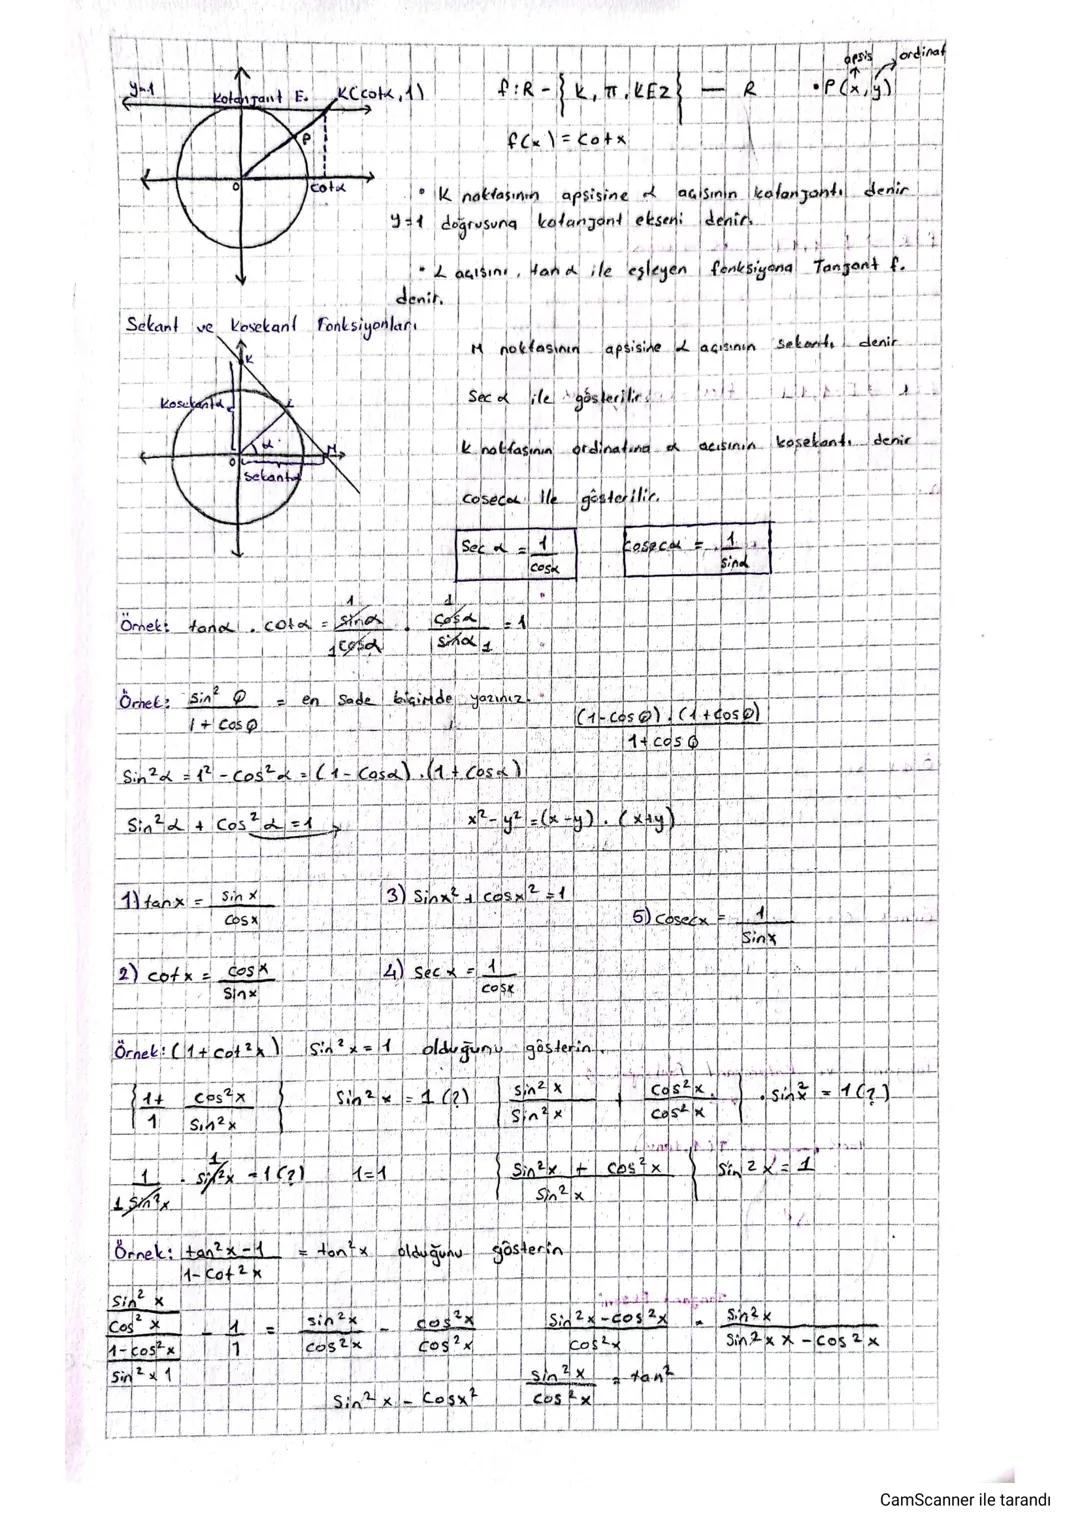 apsis ordinat
y=1
Kotanjant E. K(cotα,1)
f:R - { k, π, kEZ } — R
• P(x,y)
P
f(x) = cotx
O cotα
• K noktasının apsisine α açısının kotanjantı denir
y=1 doğrusuna kotanjant ekseni denir.
• α açısını, tanα ile eşleyen fonksiyona Tanjant f.
denir.
Sekant ve Kosekant Fonksiyonları
K
M noktasının apsisine α açısının sekantı denir
Kosekantα L
Sec α ile gösterilir.
α M
K noktasının ordinatına α açısının kosekantı denir
O
Sekantα
coseca ile gösterilir.
Sec α = 1/cosα
coseca = 1/sinα
Örnek: tanα . cotα = sinα/cosα . cosα/sinα = 1
Örnek: sin² θ/1 + cosθ = en sade biçimde yazınız.
(1-cosθ).(1+cosθ)/1+cosθ
Sin²α = 1² - cos²α = (1-cosα).(1+cosα)
Sin²α + cos²α = 1
x² - y² = (x-y).(x+y)
1) tanx = sin x/cosx
3) Sinx² + cosx² = 1
5) cosecx = 1/sinx
2) cotx = cosx/sinx
4) sec x = 1/cosx
Örnek: (1+cot²x) Sin²x = 1 olduğunu gösterin.
{ 1+/1 cos²x/sin²x } Sin²x = 1 (?) { sin²x/sin²x + cos²x/cos²x } . sin²x = 1 (?)
1/1 sin²x . sin²x = 1 (?) 1=1 { sin²x + cos²x/sin²x } Sin2x = 1
Örnek: tan²x-1/1-cot²x = tan²x olduğunu gösterin
Sin² x/cos² x/1-cos²x/sin²x 1 - 1/1 = sin²x/cos²x - cos²x/cos²x
Sin²x-cos²x/cos²x . Sin²x/Sin²x x -cos²x
Sin²x - Cosx²
sin²x/cos²x = tan²
CamScanner ile tarandı